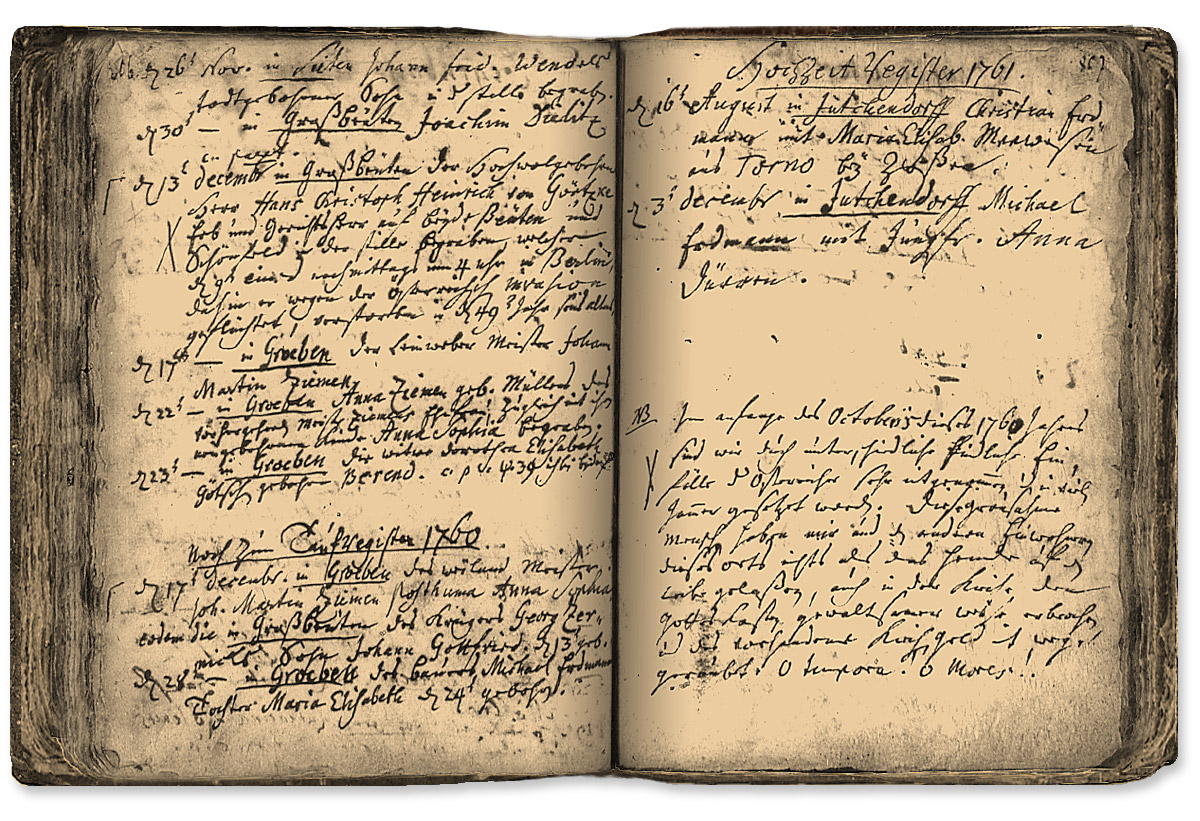 d 26t Nov. in Siten Johann frid. Wendels
todtgebohrner Sohn in d stille begrab.
d 30t — in Großbeuten Joachim Dielitz
d 13t decembr in Großbeuten der Hochwolgebohrne
Herr Hans Christoph Heinrich von Goertzke
Erb und Gerichtsherr auf beyde Beuten und
Schönfeld in der stille begraben, welcher
d 9t ejusd nachmittags um 4 uhr in Berlin,
dahin er wegen der Österreichsch invasion
geflüchtet, verstorben d 49 Jahr seines alters
d 17t — in Groeben der Leinweber Meister Johann
Martin Ziemen
d 22t — in Groeben Anna Ziemen geb. Müllers des
vorhergehend Meist. Ziemens Ehefrau, zugleich mit ihr
neugebohrnen Kinde Anna Sophia begraben.
d 23t — in Groeben die witwe dorothea Elisabeth
Götsch gebohrne Berend.
Noch zum Tauf Register 1760
d 17t decembr. in Groeben des weiland Meister
Joh. Martin Ziemen posthuma Anna Sophia
eodem die in Großbeuten des Krügers Georg Zer-
nicks Sohn Johann Gottfried, d 13t geb.
d 28t — in Groeben des bauers Michael Erdmann
Tochter Maria Elisabeth d 24t gebohrn.
Hochzeit Register 1761.
d 16t August in Jütchendorff Christian Erd
mann mit Maria Elisab.
aus Torno bey Zossen.
d 3t decembr in Jütchendorff Michael
Erdmann mit Jungfr. Anna
Dürren.
NB Im anfange des Octobers dieses 1760 Jahres
sind wir durch unterschiedliche feindliche Ein-
fälle d Österreicher sehr mitgenommen und in viel
Jammer gesetzet word. Diese grausahme
Mensch haben mir und d andern Einwohnern
dieses orts nichts als das Hemde auf d
leibe gelaßen, auch in der Kirche den
Gottes Kasten gewaltsamer weise erbrochen
und das vorhandene Kirch geld mit wegge-
geraubt. O tempora! O Mores!!